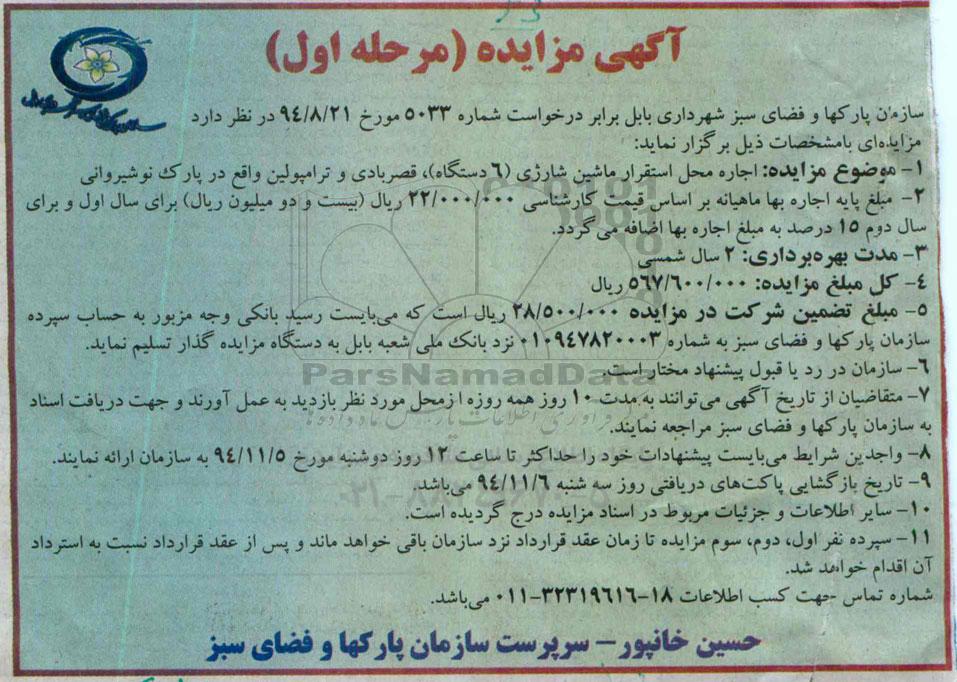 آگهی مزایده (مرحله اول)
سازمان پارکها و فضای سبز شهرداری بابل برابر درخواست شماره ۵۰۳۳ مورخ ۹۴/۸/۲۱ در نظر دارد
مزایده‌ای بامشخصات ذیل برگزار نماید:
۱- موضوع مزایده: اجاره محل استقرار ماشین شارژی (۶ دستگاه)، قصربادی و ترامپولین واقع در پارک نوشیروانی
۲- مبلغ پایه اجاره بها ماهیانه بر اساس قیمت کارشناسی ۲۲/۰۰۰/۰۰۰ ریال (بیست و دو میلیون ریال) برای سال اول و برای
سال دوم ۱۵ درصد به مبلغ اجاره بها اضافه می‌گردد.
۳- مدت بهره‌برداری: ۲ سال شمسی
۴- کل مبلغ مزایده: ۵۶۷/۶۰۰/۰۰۰ ریال
۵- مبلغ تضمین شرکت در مزایده ۲۸/۵۰۰/۰۰۰ ریال است که می‌بایست رسید بانکی وجه مزبور به حساب سپرده
سازمان پارکها و فضای سبز به شماره ۰۱۰۹۴۷۸۲۰۰۰۳ نزد بانک ملی شعبه بابل به دستگاه مزایده گذار تسلیم نماید.
ParsNamadData
۶- سازمان در رد یا قبول پیشنهاد مختار است.
۷- متقاضیان از تاریخ آگهی می‌توانند به مدت ۱۰ روز همه روزه ازمحل مورد نظر بازدید به عمل آورند و جهت دریافت اسناد
به سازمان پارکها و فضای سبز مراجعه نمایند.
۸- واجدین شرایط می‌بایست پیشنهادات خود را حداکثر تا ساعت ۱۲ روز دوشنبه مورخ ۹۴/۱۱/۵ به سازمان ارائه نمایند.
۹- تاریخ بازگشایی پاکت‌های دریافتی روز سه شنبه ۹۴/۱۱/۶ می‌باشد.
۱۰- سایر اطلاعات و جزئیات مربوط در اسناد مزایده درج گردیده است.
۱۱- سپرده نفر اول، دوم، سوم مزایده تا زمان عقد قرارداد نزد سازمان باقی خواهد ماند و پس از عقد قرارداد نسبت به استرداد
آن اقدام خواهد شد.
شماره تماس جهت کسب اطلاعات ۱۸-۳۲۳۱۹۶۱۶-۰۱۱ می‌باشد.
حسین خانپور – سرپرست سازمان پارکها و فضای سبز